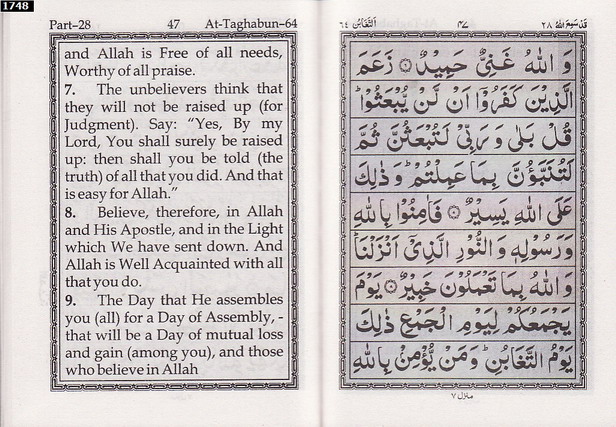 1748
Part–28 47 At-Taghabun–64
and Allah is Free of all needs,
Worthy of all praise.
7. The unbelievers think that
they will not be raised up (for
Judgment). Say: “Yes, By my
Lord, You shall surely be raised
up: then shall you be told (the
truth) of all that you did. And that
is easy for Allah.”
8. Believe, therefore, in Allah
and His Apostle, and in the Light
which We have sent down. And
Allah is Well Acquainted with all
that you do.
9. The Day that He assembles
you (all) for a Day of Assembly, -
that will be a Day of mutual loss
and gain (among you), and those
who believe in Allah
قد سمع الله ٢٨ ٤٧ التغابن ٦٤
وَ اللّٰهُ غَنِیٌّ حَمِیْدٌ ۞ زَعَمَ
الَّذِیْنَ كَفَرُوْۤا اَنْ لَّنْ یُّبْعَثُوْا ؕ
قُلْ بَلٰی وَ رَبِّیْ لَتُبْعَثُنَّ ثُمَّ
لَتُنَبَّؤُنَّ بِمَا عَمِلْتُمْ ؕ وَ ذٰلِكَ
عَلَی اللّٰهِ یَسِیْرٌ ۞ فَاٰمِنُوْا بِاللّٰهِ
وَ رَسُوْلِهٖ وَ النُّوْرِ الَّذِیْۤ اَنْزَلْنَا ؕ
وَ اللّٰهُ بِمَا تَعْمَلُوْنَ خَبِیْرٌ ۞ یَوْمَ
یَجْمَعُكُمْ لِیَوْمِ الْجَمْعِ ذٰلِكَ
یَوْمُ التَّغَابُنِ ؕ وَ مَنْ یُّؤْمِنْۢ بِاللّٰهِ
منزل ٧